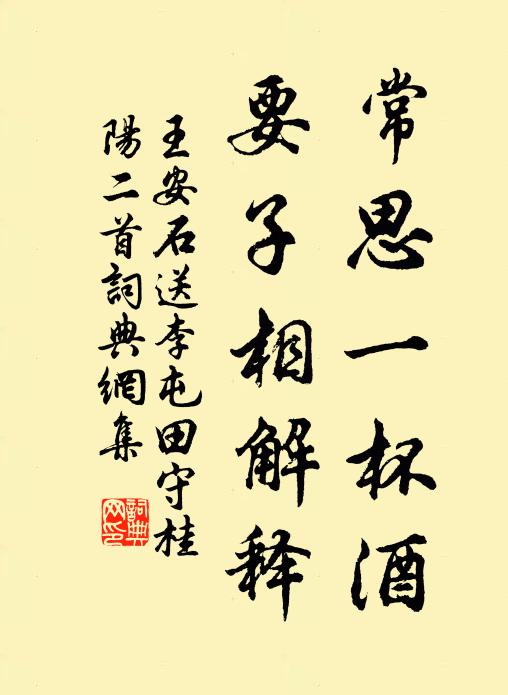 常思一杯酒
要子相解释
王安石送李屯田守桂
陽二首詞典網集
詞典
网印